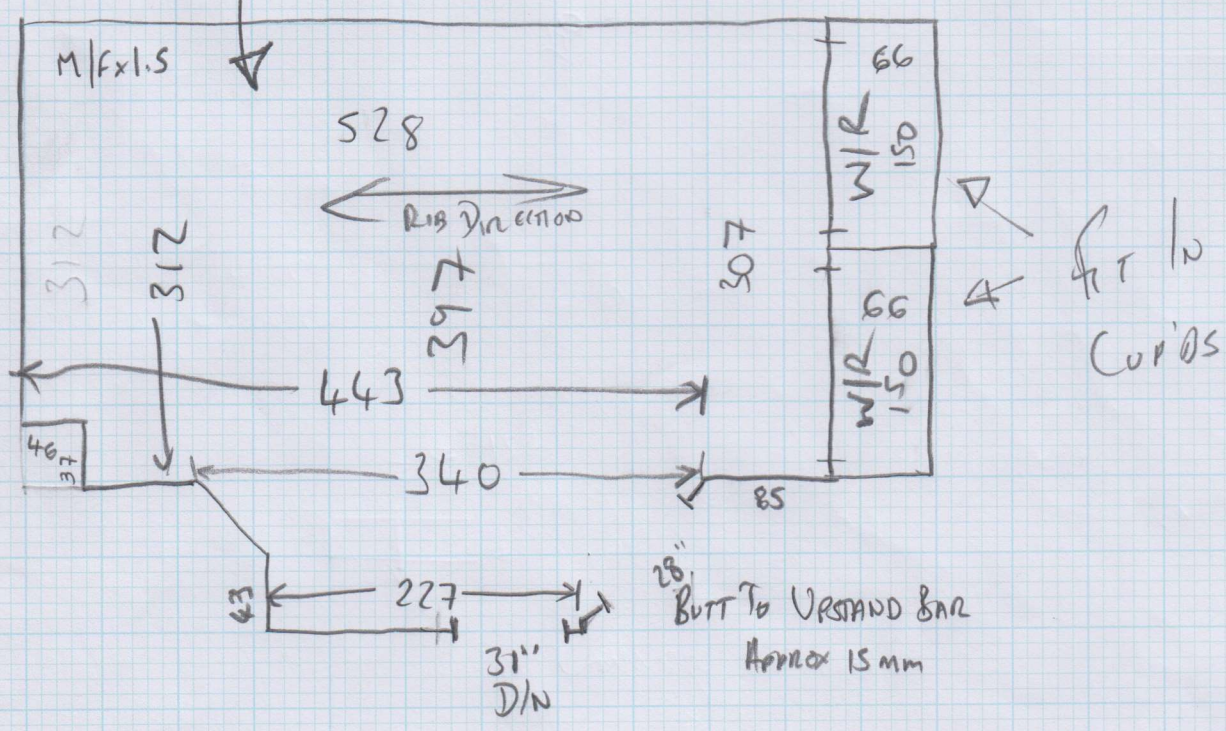 M/Fx1.5
528
RIB DIRECTION
312
312
397
307
W/R
150
66
W/R
150
66
FIT IN
CUP'DS
443
46
37
340
85
43
227
31"
D/N
28"
BUTT TO UPSTAND BAR
APPROX 15mm